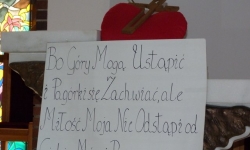 Bo Góry Mogą Ustąpić
i Pagórki się Zachwiać, ale
Miłość Moja Nie Odstąpi od